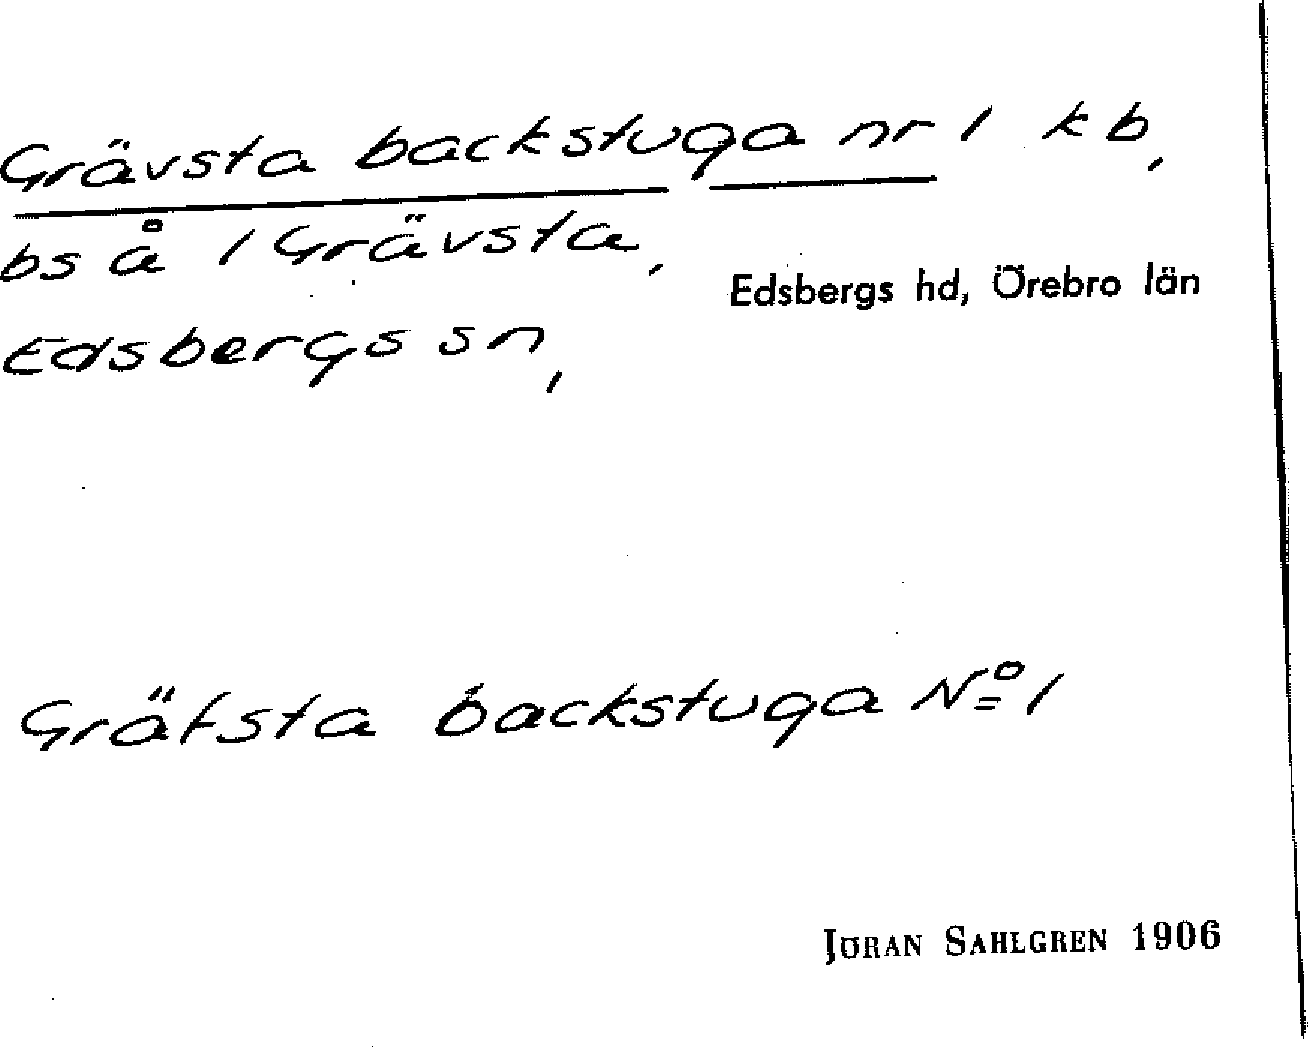 Grävsta backstuga nr 1 kb,
bs å 1 Grävsta,
Edsbergs hd, Örebro län
Edsbergs sn,
Gräfsta backstuga Nº 1
JÖRAN SAHLGREN 1906